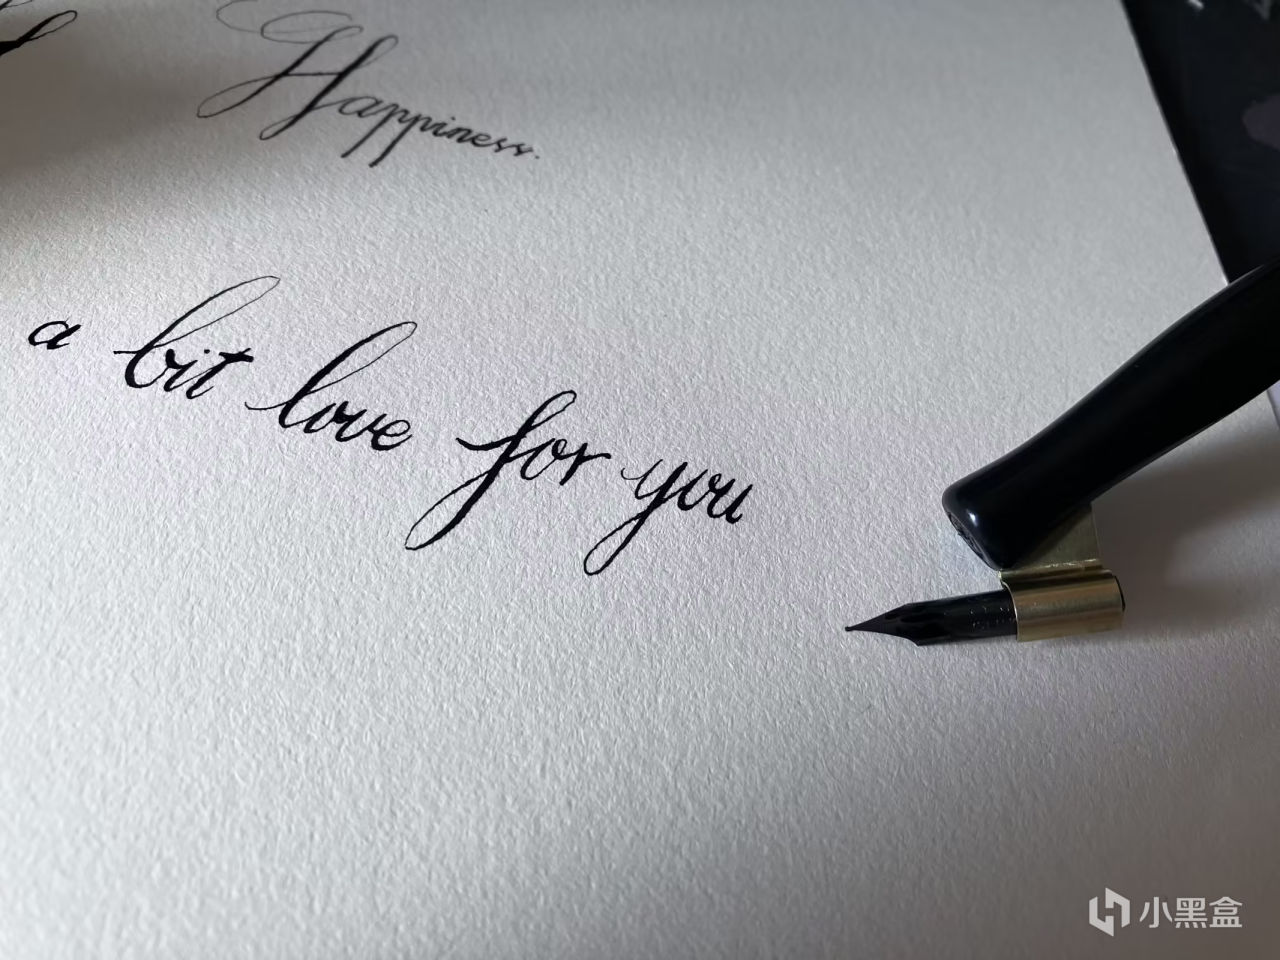 Happiness.
a bit love for you
小黑盒